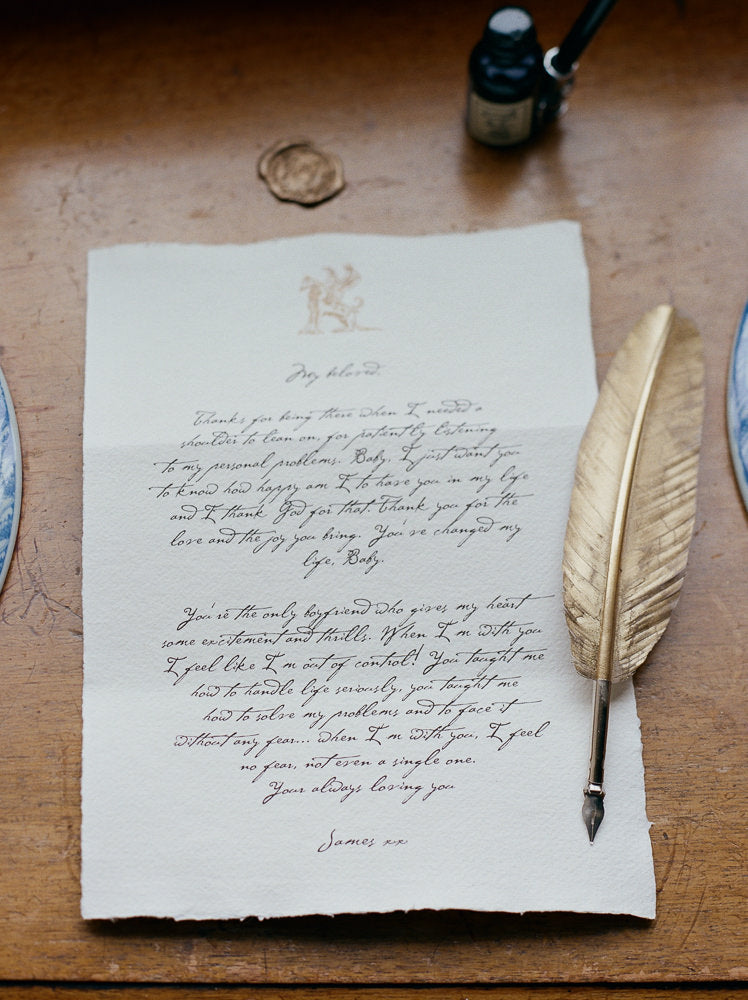 My beloved,
Thanks for being there when I needed a
shoulder to lean on, for patiently listening
to my personal problems. Baby, I just want you
to know how happy am I to have you in my life
and I thank God for that. Thank you for the
love and the joy you bring. You've changed my
life, Baby.
You're the only boyfriend who gives my heart
some excitement and thrills. When I'm with you
I feel like I'm out of control! You taught me
how to handle life seriously, you taught me
how to solve my problems and to face it
without any fear... when I'm with you, I feel
no fear, not even a single one.
Your always loving you
James xx